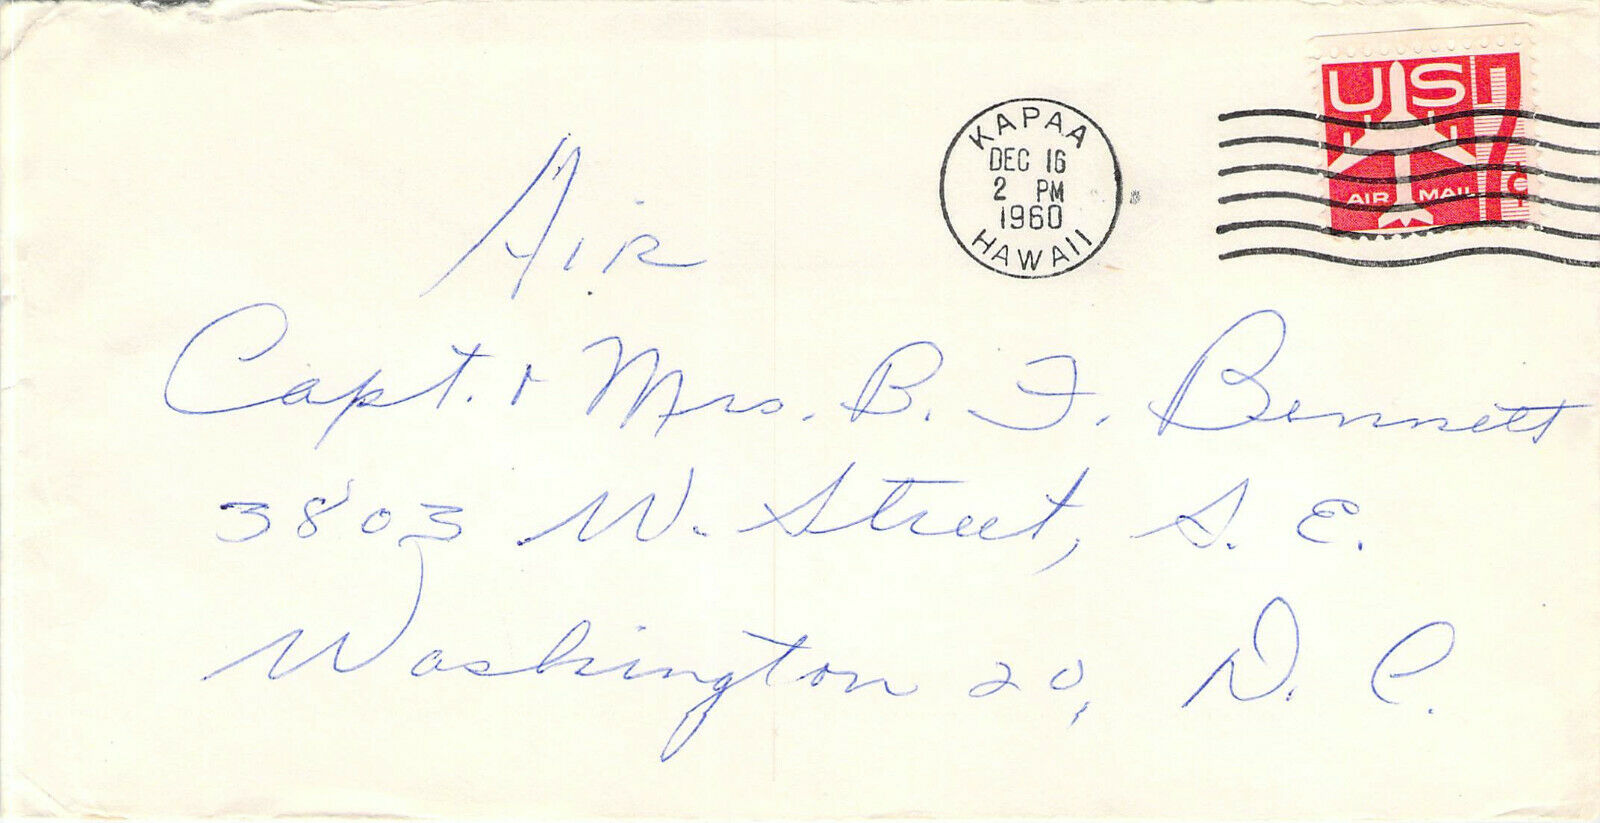 US 7¢
AIR MAIL
KAPAA
DEC 16
2 PM
1960
HAWAII
Air
Capt. & Mrs. B. F. Bennett
3803 W. Street, S. E.
Washington 20, D. C.